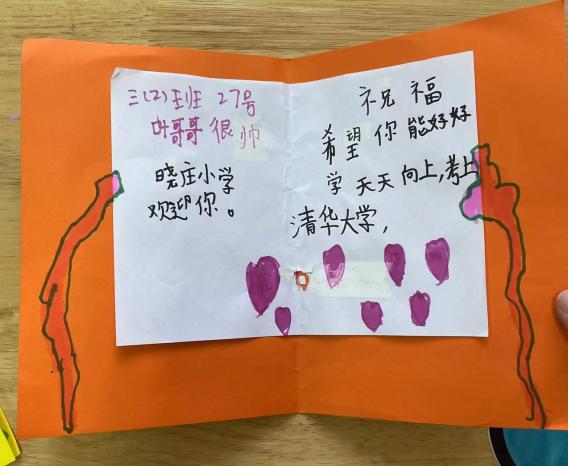 三(2)班 27号
叶哥哥很帅
晓庄小学
欢迎你。
祝福
希望你能好好
学天天向上,考上
清华大学,